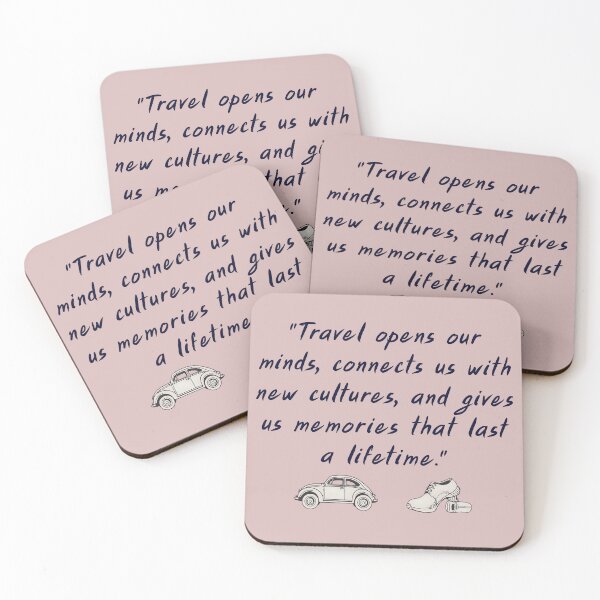 "Travel opens our
minds, connects us with
new cultures, and
us that
"Travel opens our
minds, connects us with
new cultures, and gives
us memories that last
a lifetime."
"Travel opens our
minds, connects us with
new cultures, and gives
us memories that last
a lifetime
"Travel opens our
minds, connects us with
new cultures, and gives
us memories that last
a lifetime."